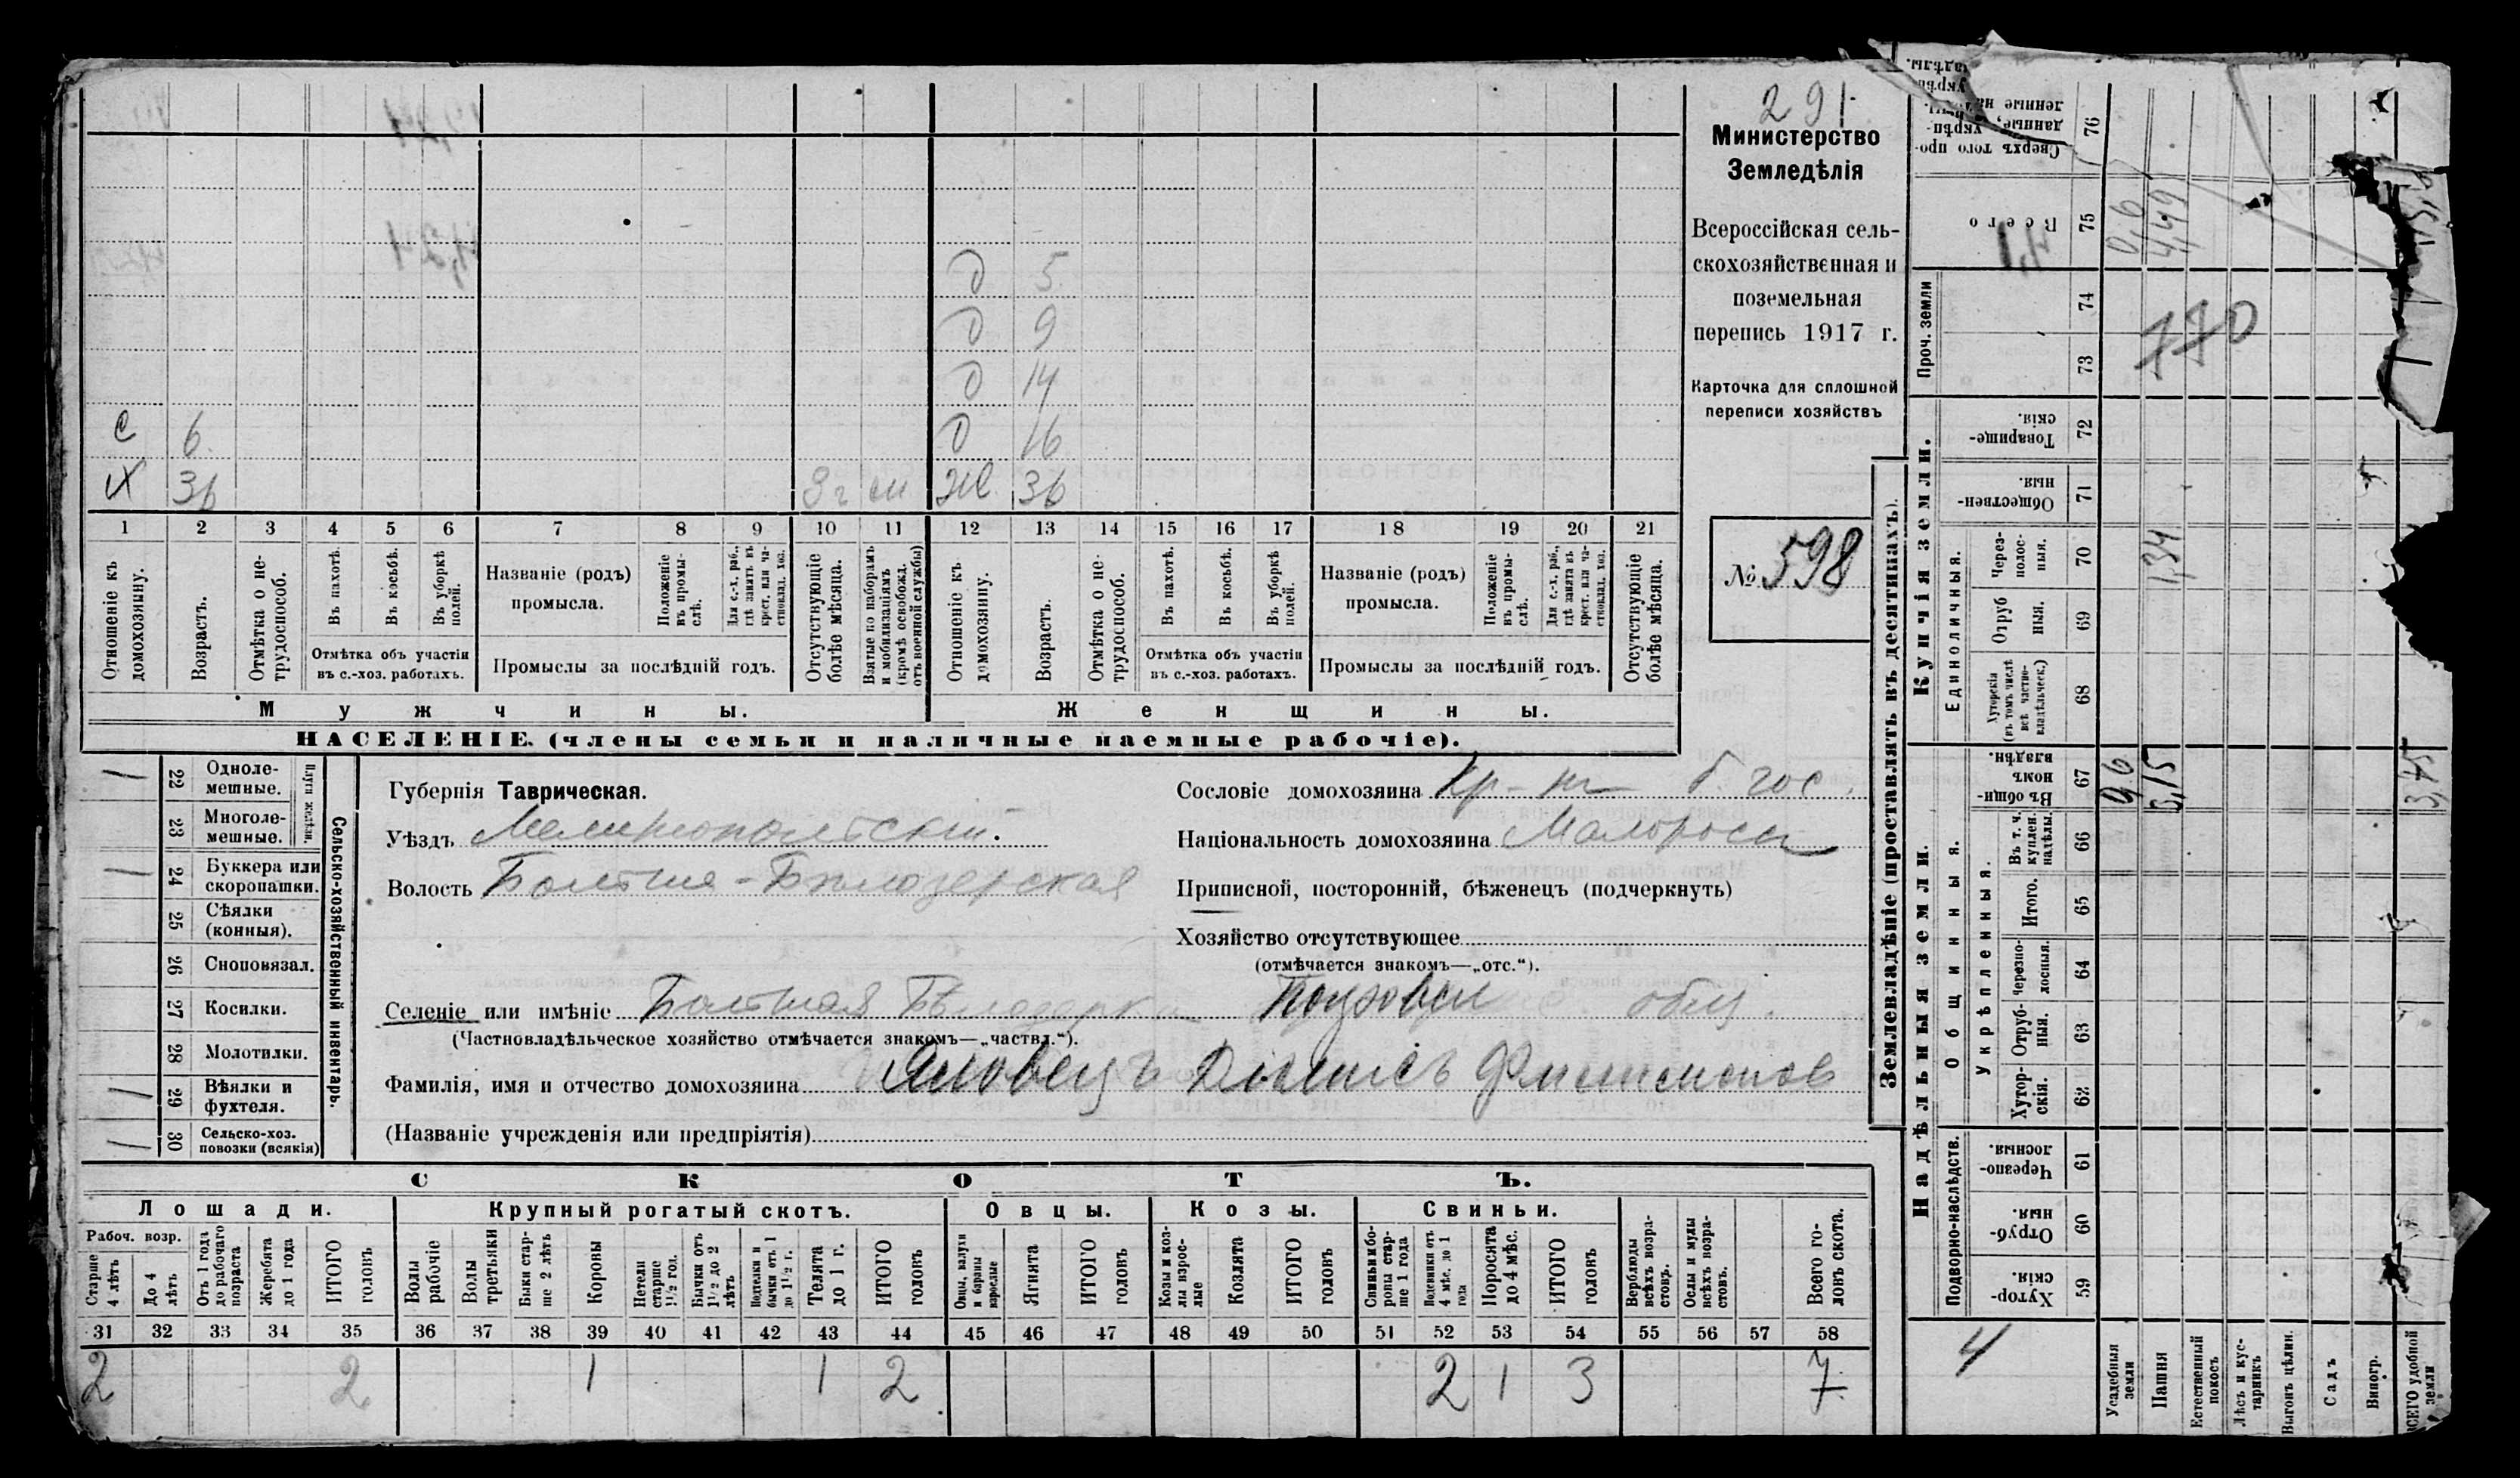 291
Министерство
Земледѣлія
Всероссійская сель-
скохозяйственная и
поземельная
перепись 1917 г.
Карточка для сплошной
переписи хозяйствъ
№ 598
О 5
О 9
О 14
С 6. О 16
Х 36 Же 36
1 2 3 4 5 6 7 8 9 10 11 12 13 14 15 16 17 18 19 20 21
Отношеніе къ домохозяину.
Возрастъ.
Отмѣтка о не-трудоспособ.
Въ пахотѣ.
Въ косьбѣ.
Въ уборкѣ полей.
Отмѣтка объ участіи
въ с.-хоз. работахъ.
Названіе (родъ)
промысла.
Положеніе въ промы-слѣ.
Для с.-х. раб., гдѣ занятъ въ крест. или ча-стновлад. хоз.
Промыслы за послѣдній годъ.
Отсутствующіе болѣе мѣсяца.
Взятые по наборамъ и мобилизаціямъ (кромѣ освобожд. отъ военной службы)
Отношеніе къ домохозяину.
Возрастъ.
Отмѣтка о не-трудоспособ.
Въ пахотѣ.
Въ косьбѣ.
Въ уборкѣ полей.
Отмѣтка объ участіи
въ с.-хоз. работахъ.
Названіе (родъ)
промысла.
Положеніе въ промы-слѣ.
Для с.-х. раб., гдѣ занята въ крест. или ча-стновлад. хоз.
Промыслы за послѣдній годъ.
Отсутствующіе болѣе мѣсяца.
Мужчины. Женщины.
НАСЕЛЕНІЕ. (члены семьи и наличные наемные рабочіе).
Сельско-хозяйственный инвентарь.
Плуги желѣзн.
22 Одноле-мешные.
23 Многоле-мешные.
24 Буккера или скоропашки.
25 Сѣялки (конныя).
26 Сноповязал.
27 Косилки.
28 Молотилки.
29 Вѣялки и фухтеля.
30 Сельско-хоз. повозки (всякія)
Губернія Таврическая.
Уѣздъ Мелитопольскій.
Волость Больше-Бѣлозерская
Сословіе домохозяина Кр-нъ б. гос.
Національность домохозяина Малороссъ
Приписной, посторонній, бѣженецъ (подчеркнуть)
Хозяйство отсутствующее
(отмѣчается знакомъ—„отс.“).
Селеніе или имѣніе Большая Бѣлозерка общ.
(Частновладѣльческое хозяйство отмѣчается знакомъ—„частвл.“).
Фамилія, имя и отчество домохозяина Яловецъ Денисъ Филимонов
(Названіе учрежденія или предпріятія)
СКОТЪ.
Лошади. Крупный рогатый скотъ. Овцы. Козы. Свиньи.
Рабоч. возр.
Старше 4 лѣтъ
До 4 лѣтъ
Отъ 1 года до рабочаго возраста
Жеребята до 1 года
ИТОГО головъ
Волы рабочіе
Волы третьяки
Быки стар-ше 2 лѣтъ
Коровы
Нетели старше 1½ год.
Бычки отъ 1½ до 2 лѣтъ
Подтелки и бычки отъ 1 до 1½ г.
Телята до 1 г.
ИТОГО головъ
Овцы, валухи и бараны взрослые
Ягнята
ИТОГО головъ
Козы и коз-лы взрос-лые
Козлята
ИТОГО головъ
Свиньи и бо-ровы стар-ше 1 года
Подсвинки отъ 4 мѣс. до 1 года
Поросята до 4 мѣс.
ИТОГО головъ
Верблюды всѣхъ возра-стовъ.
Ослы и мулы всѣхъ возра-стовъ.
Всего го-ловъ скота.
31 32 33 34 35 36 37 38 39 40 41 42 43 44 45 46 47 48 49 50 51 52 53 54 55 56 57 58
2 2 1 1 2 2 1 3 7
Землевладѣніе (проставлять въ десятинахъ).
Надѣльныя земли. Купчія земли.
Подворно-наслѣдств.
Общинныя.
Укрѣпленныя.
Единоличныя.
Проч. земли
59 Хутор-скія.
60 Отруб-ныя.
61 Черезпо-лосныя.
62 Хутор-скія.
63 Отруб-ныя.
64 Черезпо-лосныя.
65 Итого.
66 Въ т. ч. куплен. надѣлы.
67 Въ общи-номъ владѣн.
68 Хуторскія (въ томъ числѣ всѣ частно-владѣльческ.)
69 Отруб-ныя.
70 Через-полос-ныя.
71 Обществен-ныя.
72 Товарище-скія.
73
74
75 Всего
76 Сверхъ того про-данные, укрѣп-ленные
4
Усадебныя земли
Пашня
Естественный покосъ
Лѣсъ и кус-тарникъ
Выгонъ цѣлин.
Садъ
Виногр.
ВСЕГО удобной земли
0,6 3,15 3,75
1,34
0,6 4,49
770